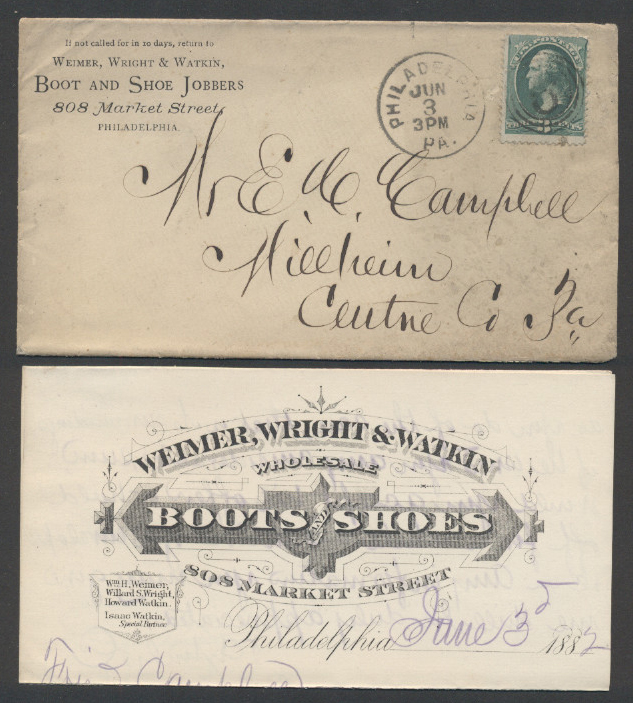 If not called for in 10 days, return to
WEIMER, WRIGHT & WATKIN,
BOOT AND SHOE JOBBERS
808 Market Street,
PHILADELPHIA.
PHILADELPHIA
JUN
3
3PM
PA.
Mr E. C. Campbell
Millheim
Centre Co Pa
WEIMER, WRIGHT & WATKIN
WHOLESALE
BOOTS AND SHOES
808 MARKET STREET
Wm. H. Weimer,
Willard S. Wright,
Howard Watkin.
Isaac Watkin,
Special Partner
Philadelphia June 3d 1882
Campbell